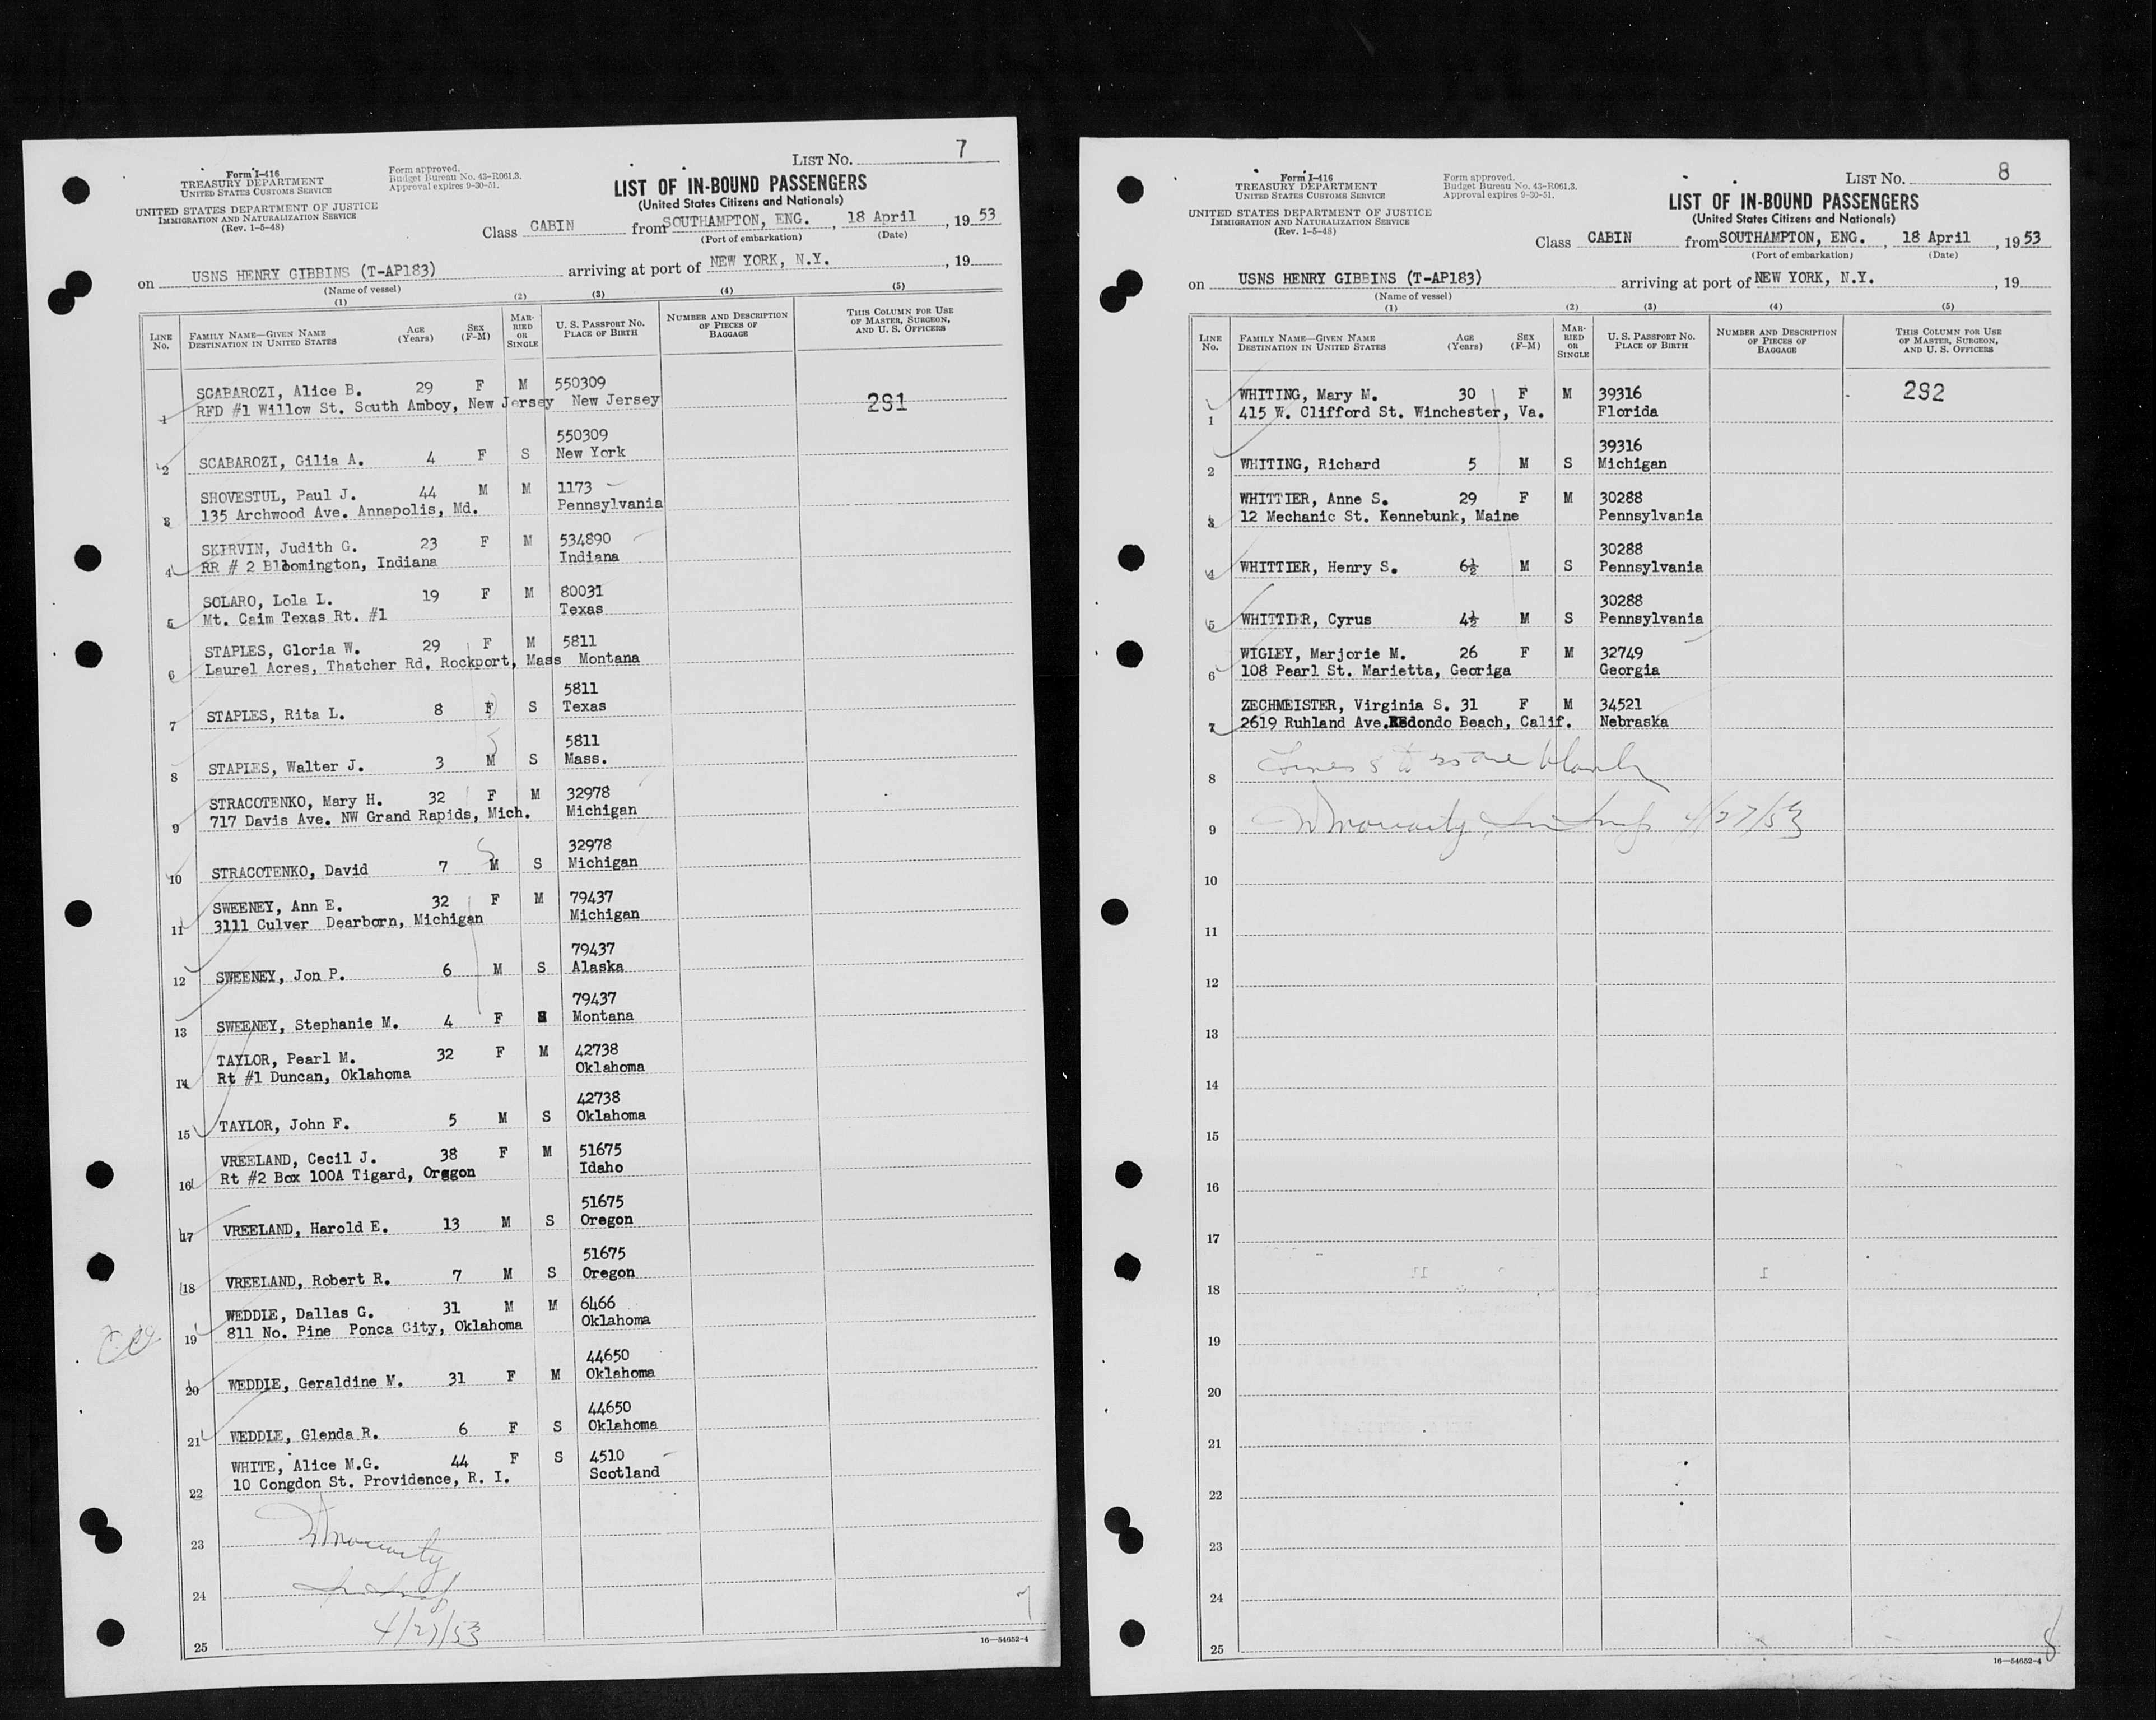 LIST NO. 7
Form I-416
TREASURY DEPARTMENT
UNITED STATES CUSTOMS SERVICE
UNITED STATES DEPARTMENT OF JUSTICE
IMMIGRATION AND NATURALIZATION SERVICE
(Rev. 1-5-48)
Form approved.
Budget Bureau No. 43-R061.3.
Approval expires 9-30-51.
LIST OF IN-BOUND PASSENGERS
(United States Citizens and Nationals)
Class CABIN from SOUTHAMPTON, ENG., 18 April, 1953
(Port of embarkation) (Date)
on USNS HENRY GIBBINS (T-AP183) arriving at port of NEW YORK, N.Y., 19
(Name of vessel)
(1) (2) (3) (4) (5)
LINE No. FAMILY NAME—GIVEN NAME DESTINATION IN UNITED STATES AGE (Years) SEX (F-M) MARRIED OR SINGLE U. S. PASSPORT No. PLACE OF BIRTH NUMBER AND DESCRIPTION OF PIECES OF BAGGAGE THIS COLUMN FOR USE OF MASTER, SURGEON, AND U. S. OFFICERS
SCABAROZI, Alice B. 29 F M 550309
1 RFD #1 Willow St. South Amboy, New Jersey New Jersey 291
550309
2 SCABAROZI, Gilia A. 4 F S New York
SHOVESTUL, Paul J. 44 M M 1173
3 135 Archwood Ave. Annapolis, Md. Pennsylvania
SKIRVIN, Judith G. 23 F M 534890
4 RR # 2 Bloomington, Indiana Indiana
SOLARO, Lola L. 19 F M 80031
5 Mt. Caim Texas Rt. #1 Texas
STAPLES, Gloria W. 29 F M 5811
6 Laurel Acres, Thatcher Rd. Rockport, Mass Montana
5811
7 STAPLES, Rita L. 8 F S Texas
5811
8 STAPLES, Walter J. 3 M S Mass.
STRACOTENKO, Mary H. 32 F M 32978
9 717 Davis Ave. NW Grand Rapids, Mich. Michigan
32978
10 STRACOTENKO, David 7 M S Michigan
SWEENEY, Ann E. 32 F M 79437
11 3111 Culver Dearborn, Michigan Michigan
79437
12 SWEENEY, Jon P. 6 M S Alaska
79437
13 SWEENEY, Stephanie M. 4 F S Montana
TAYLOR, Pearl M. 32 F M 42738
14 Rt #1 Duncan, Oklahoma Oklahoma
42738
15 TAYLOR, John F. 5 M S Oklahoma
VREELAND, Cecil J. 38 F M 51675
16 Rt #2 Box 100A Tigard, Oregon Idaho
51675
17 VREELAND, Harold E. 13 M S Oregon
51675
18 VREELAND, Robert R. 7 M S Oregon
WEDDIE, Dallas G. 31 M M 6466
19 811 No. Pine Ponca City, Oklahoma Oklahoma
44650
20 WEDDIE, Geraldine M. 31 F M Oklahoma
44650
21 WEDDIE, Glenda R. 6 F S Oklahoma
WHITE, Alice M.G. 44 F S 4510
22 10 Congdon St. Providence, R. I. Scotland
23
24
4/27/53
25
7
16—54652-4
LIST NO. 8
Form I-416
TREASURY DEPARTMENT
UNITED STATES CUSTOMS SERVICE
UNITED STATES DEPARTMENT OF JUSTICE
IMMIGRATION AND NATURALIZATION SERVICE
(Rev. 1-5-48)
Form approved.
Budget Bureau No. 43-R061.3.
Approval expires 9-30-51.
LIST OF IN-BOUND PASSENGERS
(United States Citizens and Nationals)
Class CABIN from SOUTHAMPTON, ENG., 18 April, 1953
(Port of embarkation) (Date)
on USNS HENRY GIBBINS (T-AP183) arriving at port of NEW YORK, N.Y., 19
(Name of vessel)
(1) (2) (3) (4) (5)
LINE No. FAMILY NAME—GIVEN NAME DESTINATION IN UNITED STATES AGE (Years) SEX (F-M) MARRIED OR SINGLE U. S. PASSPORT No. PLACE OF BIRTH NUMBER AND DESCRIPTION OF PIECES OF BAGGAGE THIS COLUMN FOR USE OF MASTER, SURGEON, AND U. S. OFFICERS
WHITING, Mary M. 30 F M 39316 292
1 415 W. Clifford St. Winchester, Va. Florida
39316
2 WHITING, Richard 5 M S Michigan
WHITTIER, Anne S. 29 F M 30288
3 12 Mechanic St. Kennebunk, Maine Pennsylvania
30288
4 WHITTIER, Henry S. 6½ M S Pennsylvania
30288
5 WHITTIER, Cyrus 4½ M S Pennsylvania
WIGLEY, Marjorie M. 26 F M 32749
6 108 Pearl St. Marietta, Georiga Georgia
ZECHMEISTER, Virginia S. 31 F M 34521
7 2619 Ruhland Ave. REdondo Beach, Calif. Nebraska
8 Lines 8 to are blank
9 4/27/53
10
11
12
13
14
15
16
17
18
19
20
21
22
23
24
25
8
16—54652-4